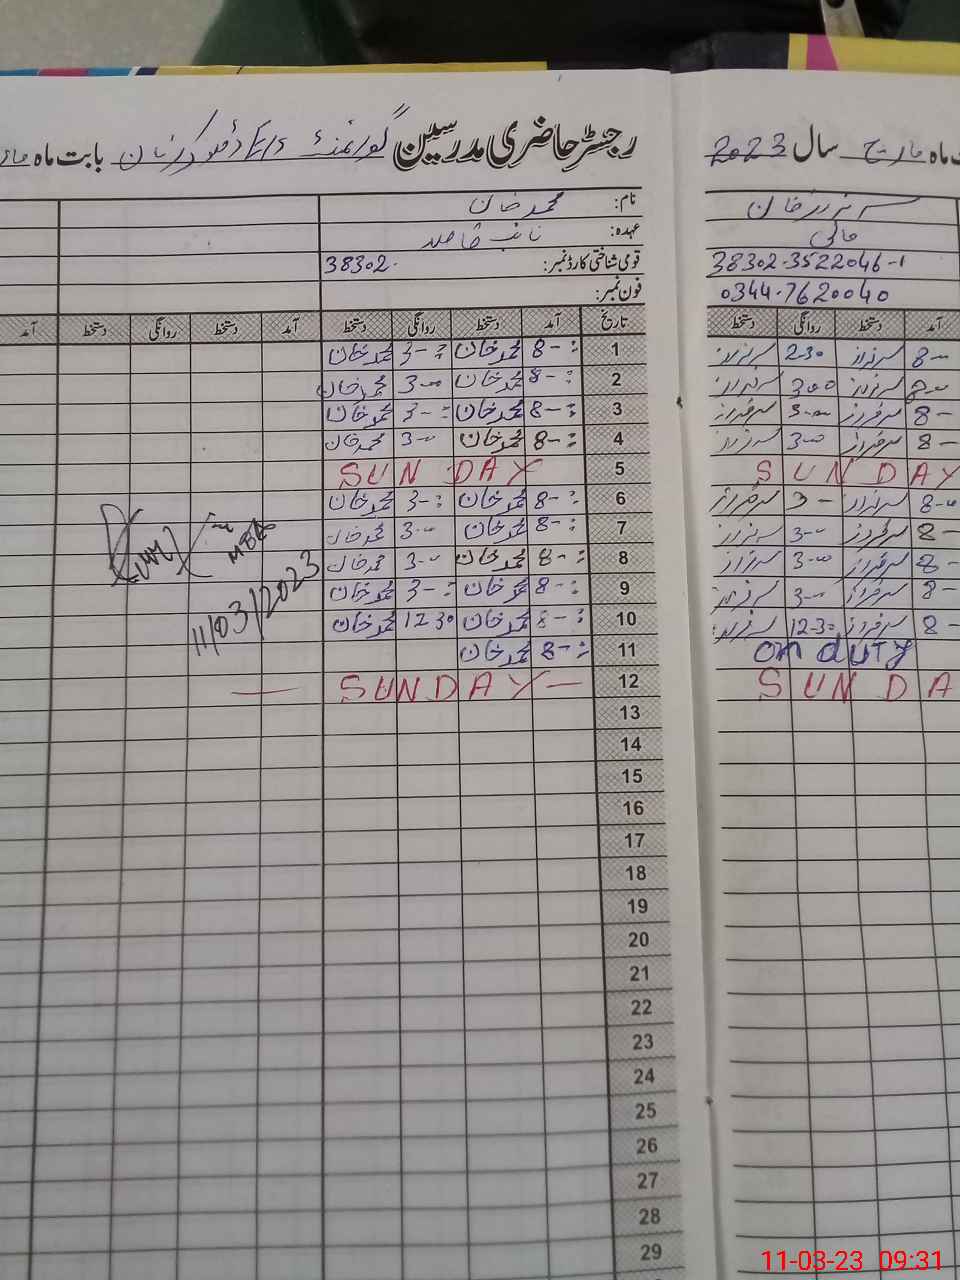 رجسٹر حاضری مدرسین گورنمنٹ بابت ماہ
ت ماہ مارچ سال 2023
نام: محمد خان
عہدہ: نائب قاصد
قومی شناختی کارڈ نمبر: 38302-
فون نمبر:
سرفراز خان
مالی
38302-3522046-1
0344-7620040
تاریخ آمد دستخط روانگی دستخط آمد دستخط روانگی دستخط آمد
آمد دستخط روانگی دستخط
1 8-: محمد خان 3-: محمد خان
2 8-: محمد خان 3-00 محمد خان
3 8-: محمد خان 3-: محمد خان
4 8-: محمد خان 3-00 محمد خان
5 SUN DAY
6 8-: محمد خان 3-: محمد خان
7 8-: محمد خان 3-00 محمد خان
8 8-: محمد خان 3-00 محمد خان
9 8-: محمد خان 3-: محمد خان
10 8-: محمد خان 1230 محمد خان
11 8-: محمد خان
12 SUNDAY
13
14
15
16
17
18
19
20
21
22
23
24
25
26
27
28
29
8-00 سرفراز 2-30 سرفراز
8-00 سرفراز 300 سرفراز
8- سرفراز 3-00 سرفراز
8- سرفراز 3-00 سرفراز
SUN DAY
8-00 سرفراز 3- سرفراز
8- سرفراز 3-00 سرفراز
8- سرفراز 3-00 سرفراز
8- سرفراز 3-00 سرفراز
8- سرفراز 12-30 سرفراز
on duty
SUN DA
MEA
11/03/2023
11-03-23 09:31